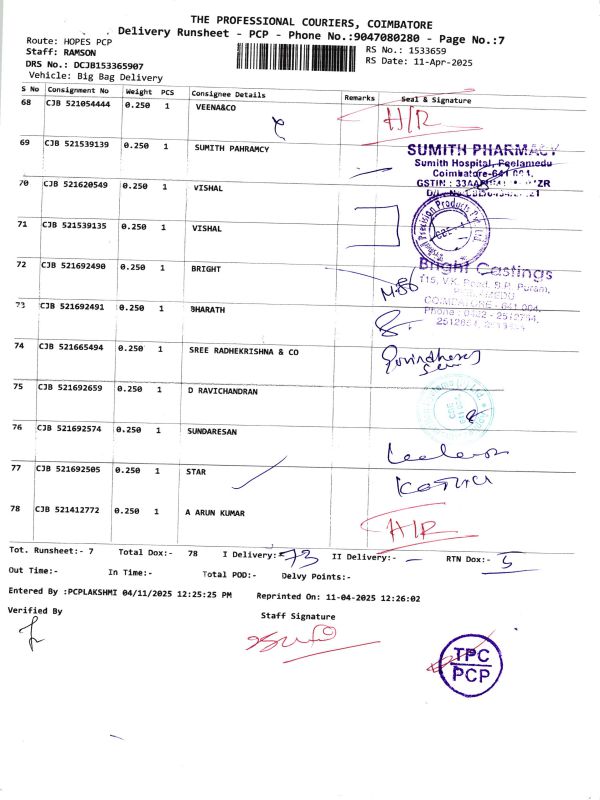 THE PROFESSIONAL COURIERS, COIMBATORE
Delivery Runsheet - PCP - Phone No.:9047080280 - Page No.:7
Route: HOPES PCP
RS No.: 1533659
Staff: RAMSON
RS Date: 11-Apr-2025
DRS No.: DCJB153365907
Vehicle: Big Bag Delivery
S No Consignment No Weight PCS Consignee Details Remarks Seal & Signature
68 CJB 521054444 0.250 1 VEENA&CO H/R
69 CJB 521539139 0.250 1 SUMITH PAHRAMCY
SUMITH PHARMACY
Sumith Hospital, Peelamedu
Coimbatore-641 004.
70 CJB 521620549 0.250 1 VISHAL
71 CJB 521539135 0.250 1 VISHAL
72 CJB 521692490 0.250 1 BRIGHT
Bright Castings
COIMBATORE - 641 004.
Phone : 0422 - 2512754,
73 CJB 521692491 0.250 1 BHARATH
74 CJB 521665494 0.250 1 SREE RADHEKRISHNA & CO
75 CJB 521692659 0.250 1 D RAVICHANDRAN
76 CJB 521692574 0.250 1 SUNDARESAN
77 CJB 521692505 0.250 1 STAR
78 CJB 521412772 0.250 1 A ARUN KUMAR H/R
Tot. Runsheet:- 7 Total Dox:- 78 I Delivery:- 73 II Delivery:- — RTN Dox:- 5
Out Time:- In Time:- Total POD:- Delvy Points:-
Entered By :PCPLAKSHMI 04/11/2025 12:25:25 PM Reprinted On: 11-04-2025 12:26:02
Verified By
Staff Signature
TPC
PCP